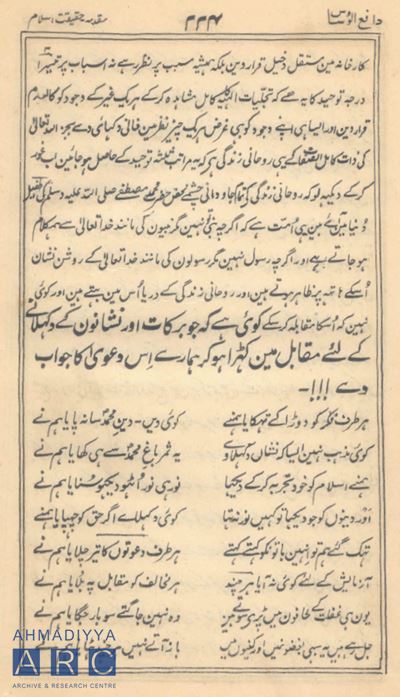 دافع الوساوس
۲۲۴
مقدمہ حقیقت اسلام
کارخانہ مین مستقل دخیل قرار دین بلکہ ہمیشہ مسبب پر نظر رہے نہ اسباب پر تیسرا
درجہ توحید کا یہ ہے کہ تجلیات الٰہیہ کا کامل مشاہدہ کر کے ہر یک غیر کے وجود کو کالعدم
قرار دین اور ایسا ہی اپنے وجود کو بھی غرض ہر یک چیز نظر مین فانی دکھائی دے بجز اللہ تعالیٰ
کی ذات کامل الصفات کے یہی روحانی زندگی ہے کہ یہ مراتب ثلثہ توحید کے حاصل ہو جائین اب غور
کر کے دیکھ لو کہ روحانی زندگی کے تمام جاودانی چشمے محض حضرت محمد مصطفیٰ صلی اللہ علیہ وسلم کی طفیل
دنیا مین آئے ہین یہی امت ہے کہ اگرچہ نبی تو نہین مگر نبیون کی مانند خدا تعالیٰ سے ہمکلام
ہو جاتے ہین اور اگرچہ رسول نہین مگر رسولون کی مانند خدا تعالیٰ کے روشن نشان
اُسکے ہاتھ پر ظاہر ہوتے ہین اور روحانی زندگی کے دریا اُس مین بہتے ہین اور کوئی
نہین کہ اُسکا مقابلہ کر سکے کوئی ہے کہ جو برکات اور نشانون کے دکھلانے
کے لئے مقابل مین کھڑا ہو کر ہمارے اس دعویٰ کا جواب
دے !!!۔
ہر طرف فکر کو دوڑا کے تھکایا ہمنے
کوئی دین۔ دین محمدؐ سا نہ پایا ہم نے
کوئی مذہب نہین ایسا کہ نشان دکھلاوے
یہ ثمر باغ محمدؐ سے ہی کھایا ہم نے
ہمنے اسلام کو خود تجربہ کر کے دیکھا
نور ہی نور اُٹھو دیکھو سنایا ہم نے
اور دینون کو جو دیکھا تو کہین نور نہ تھا
کوئی دکھلائے اگر حق کو چھپایا ہمنے
تھک گئے ہم تو انہین باتوں کو کہتے کہتے
ہر طرف دعوتون کا تیر چلایا ہم نے
آزمایش کے لئے کوئی نہ آیا ہر چند
ہر مخالف کو مقابل پہ بلایا ہم نے
یون ہی غفلت کے لحافون مین پڑے سوتے ہین
وہ نہین جاگتے سو بار جگایا ہم نے
جل رہے ہین یہ سبھی بغضون مین اور کینون مین
باز آتے نہین
AHMADIYYA
ARC
ARCHIVE & RESEARCH CENTRE